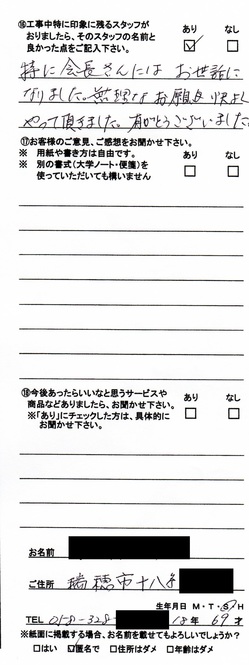 ⑯工事中特に印象に残るスタッフが
おりましたら、そのスタッフの名前と
良かった点をご記入下さい。
あり なし
☑ □
特に会長さんには お世話に
なりました。無理なお願も快よく
やって頂きました。有がとうございました。
⑰お客様のご意見、ご感想をお聞かせ下さい。
※ 用紙や書き方は自由です。
※ 別の書式(大学ノート・便箋)を
使っていただいても構いません
あり なし
□ □
⑱今後あったらいいなと思うサービスや
商品などありましたら、お聞かせ下さい。
※「あり」にチェックした方は、具体的に
お聞かせ下さい。
あり なし
□ □
お名前
ご住所 瑞穂市十八条
生年月日 M・T・S・H
TEL 058-328- 年 69才
※紙面に掲載する場合、お名前を載せてもよろしいでしょうか?
□はい ☑匿名で □住所はダメ □年齢はダメ